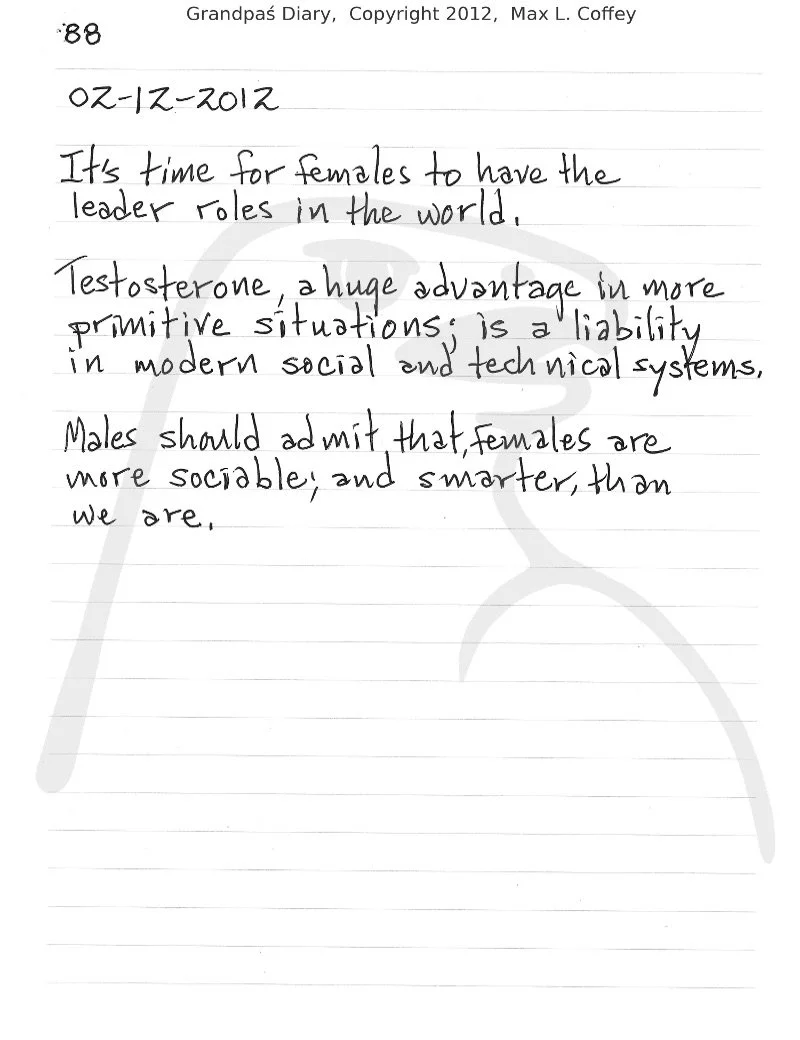 Grandpaś Diary, Copyright 2012, Max L. Coffey
88
02-12-2012
It's time for females to have the
leader roles in the world.
Testosterone, a huge advantage in more
primitive situations; is a liability
in modern social and technical systems.
Males should admit, that, females are
more sociable; and smarter, than
we are.